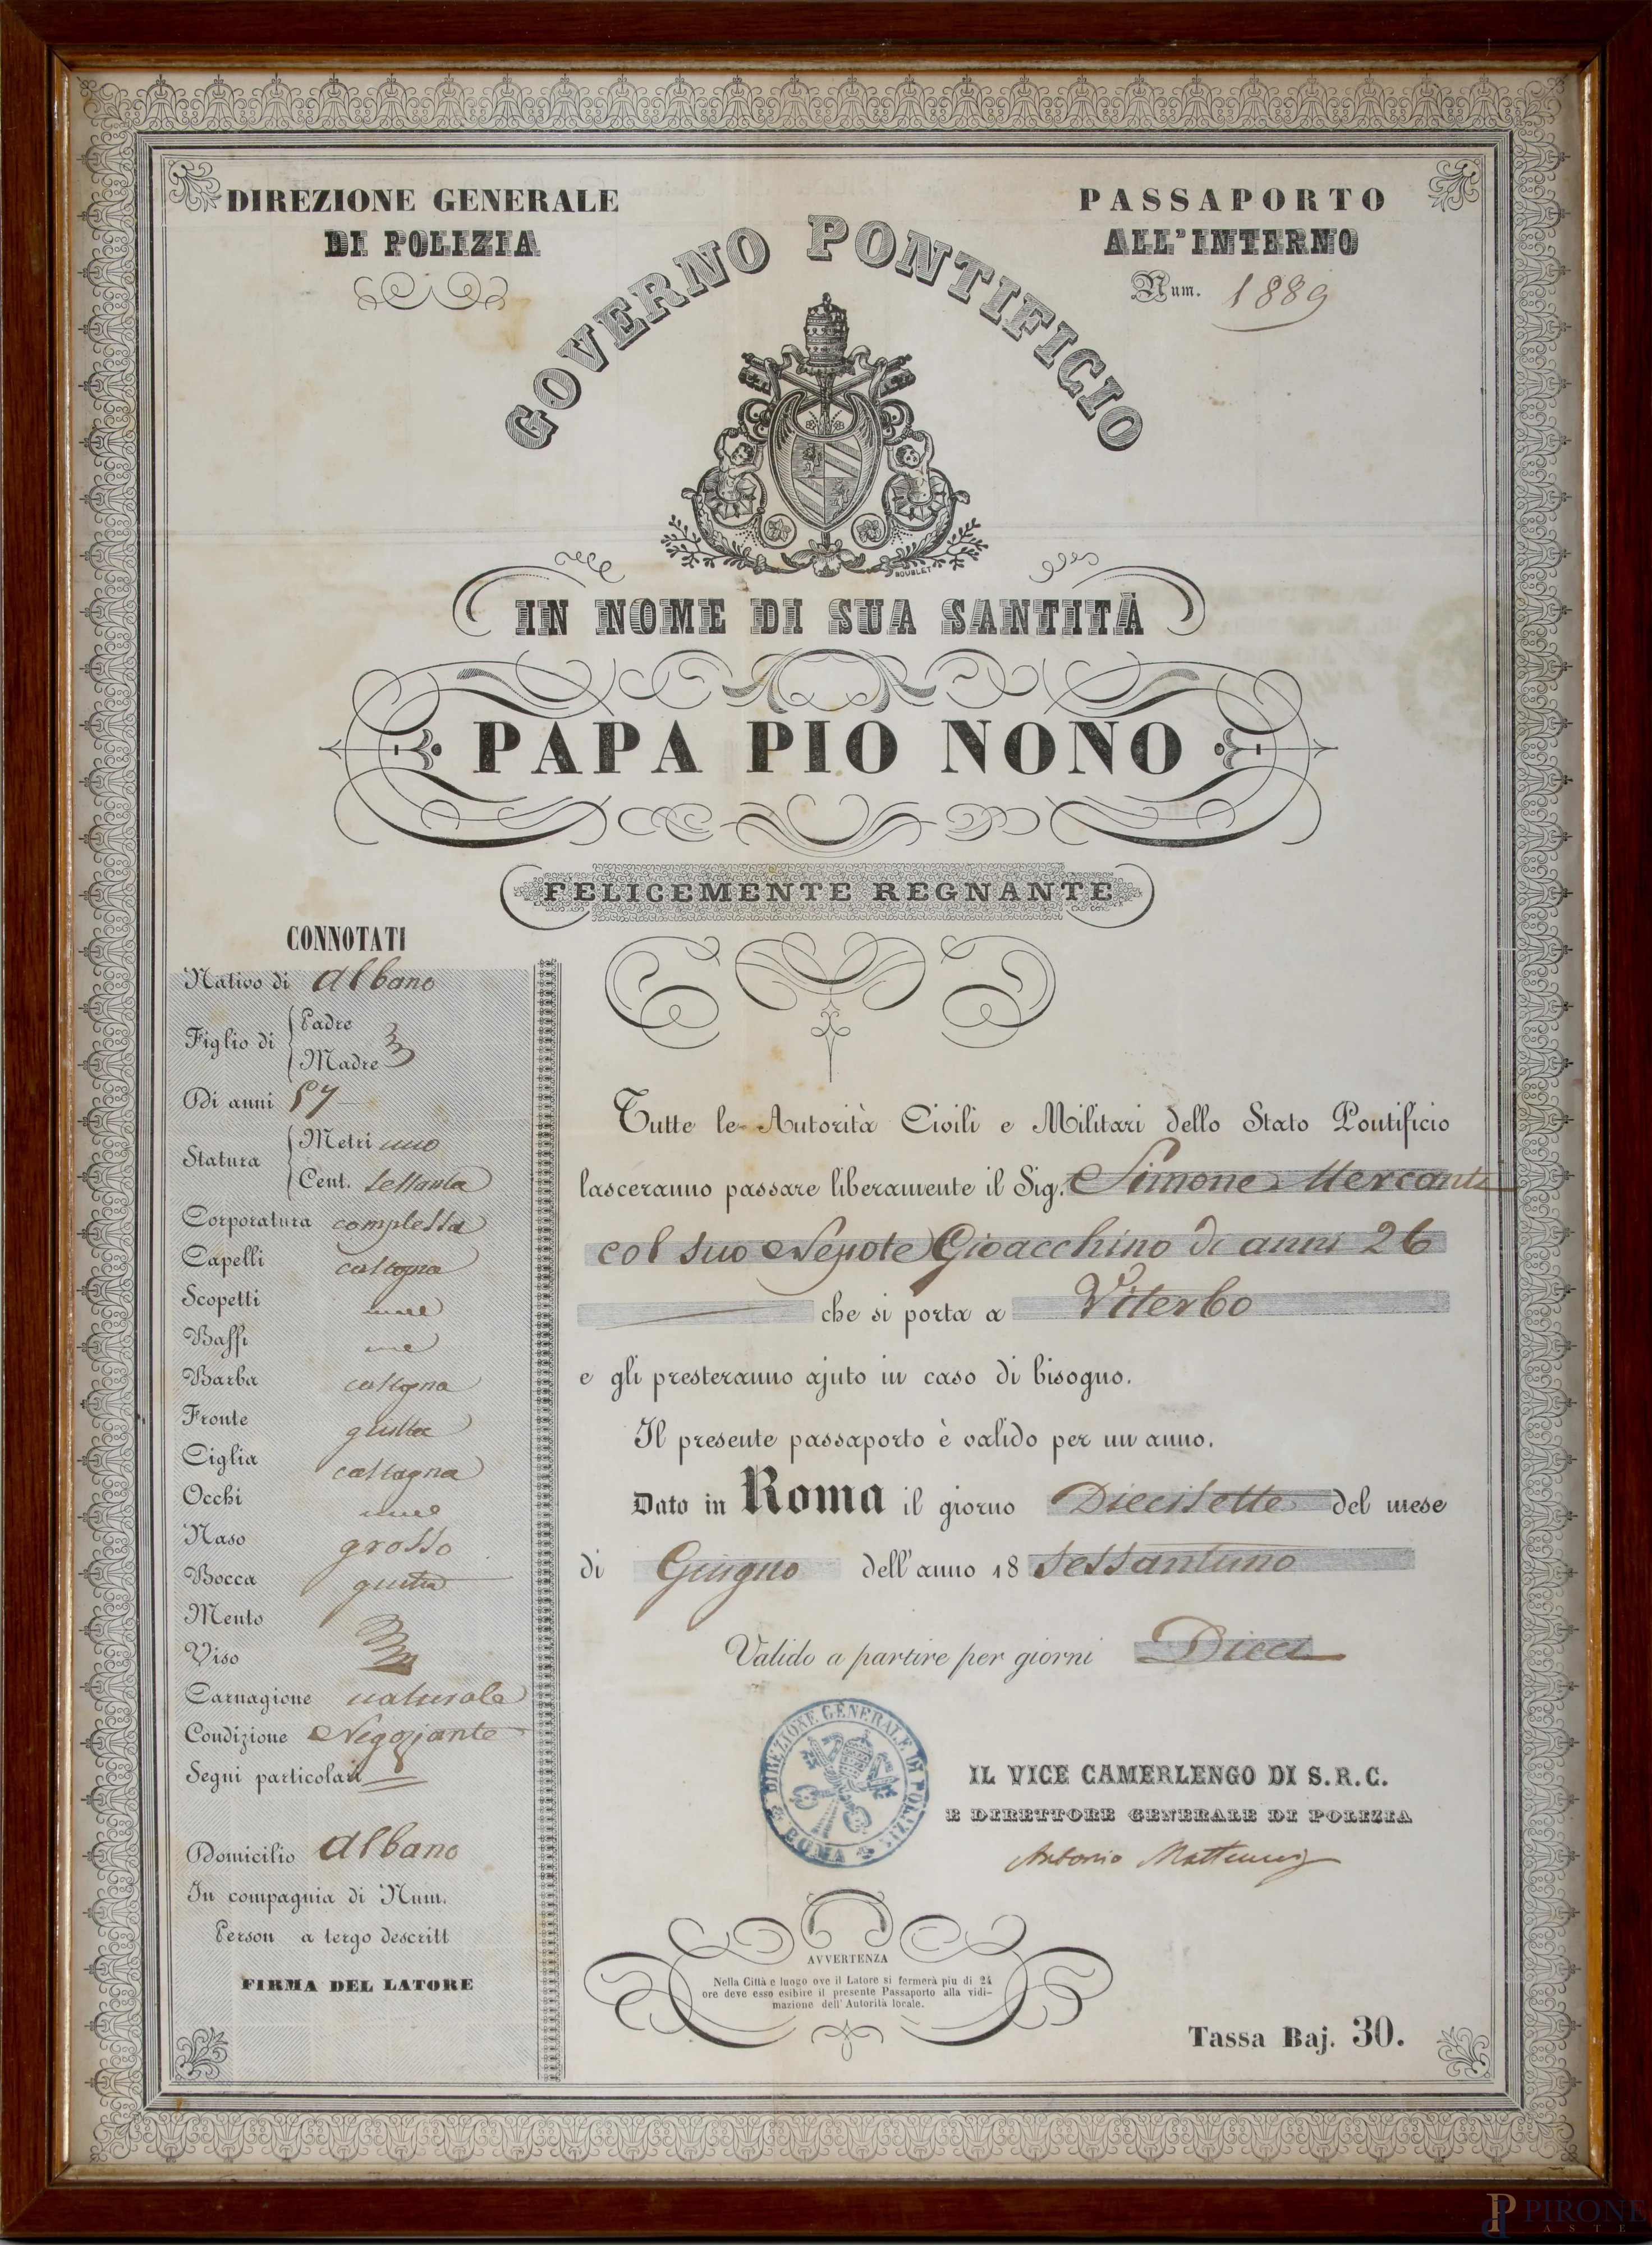 DIREZIONE GENERALE
DI POLIZIA
PASSAPORTO
ALL'INTERNO
Num. 1889
GOVERNO PONTIFICIO
BOUBLET
IN NOME DI SUA SANTITÀ
PAPA PIO NONO
FELICEMENTE REGNANTE
CONNOTATI
Nativo di Albano
Figlio di
Padre
Madre
Di anni 57
Statura
Metri uno
Cent. Sessanta
Corporatura complessa
Capelli castagna
Scopetti
Baffi
Barba castagna
Fronte giusta
Ciglia castagna
Occhi
Naso grosso
Bocca giusta
Mento
Viso
Carnagione naturale
Condizione Negoziante
Segni particolari
Domicilio Albano
In compagnia di Num.
Person a tergo descritt
FIRMA DEL LATORE
Tutte le Autorità Civili e Militari dello Stato Pontificio
lasceranno passare liberamente il Sig. Simone Mercanti
col suo Nepote Gioacchino di anni 26
che si porta a Viterbo
e gli presteranno ajuto in caso di bisogno.
Il presente passaporto è valido per un anno.
Dato in Roma il giorno Diecisette del mese
di Giugno dell'anno 18 Sessantuno
Valido a partire per giorni Dieci
DIREZIONE GENERALE DI POLIZIA
ROMA
IL VICE CAMERLENGO DI S.R.C.
E DIRETTORE GENERALE DI POLIZIA
Antonio Matteucci
AVVERTENZA
Nella Città e luogo ove il Latore si fermerà piu di 24
ore deve esso esibire il presente Passaporto alla vidi-
mazione dell'Autorità locale.
Tassa Baj. 30.
PIRONE
ASTE